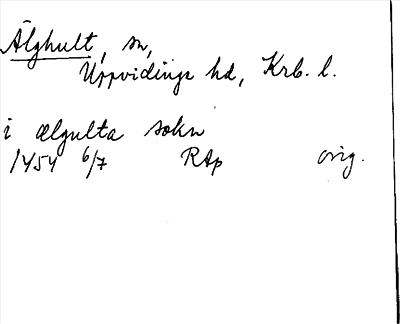 Älghult, sn,
Uppvidinge hd, Krb. l.
i ælgulta sokn
1454 6/7 RAp orig.